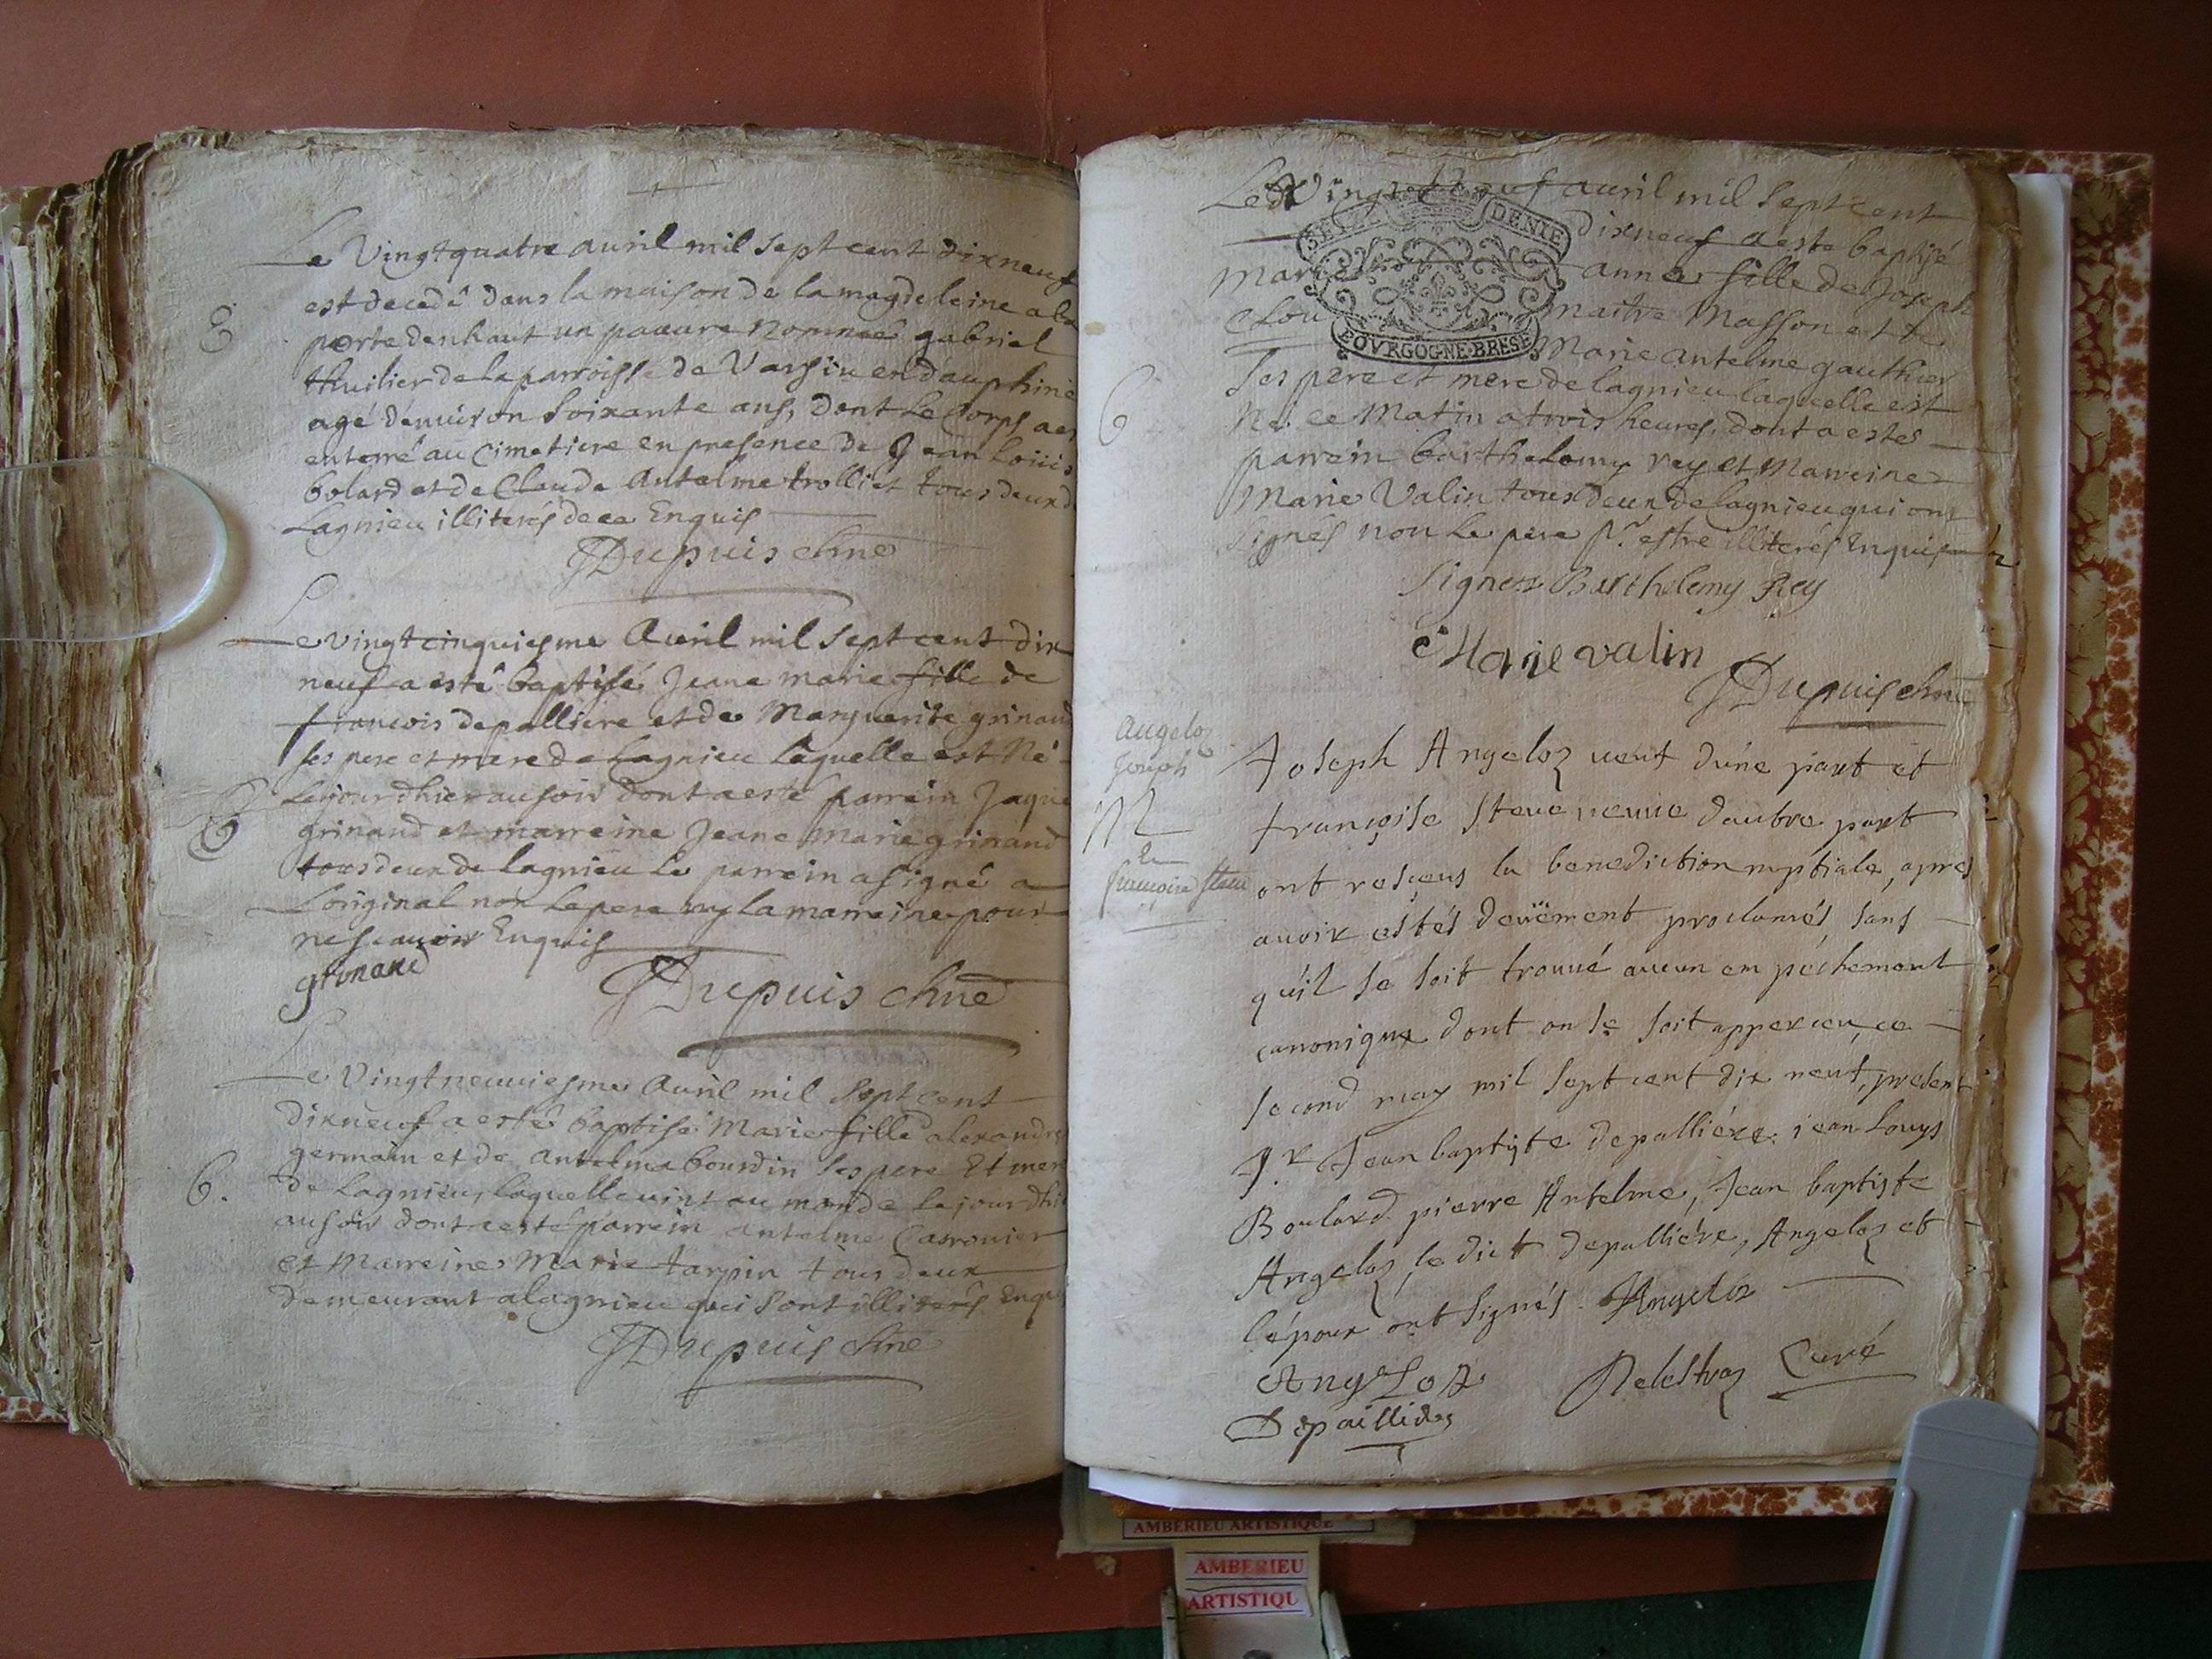 Le Vingtquatre auril mil sept cent dixneuf
est decedé dans la maison de la magdeleine a la
porte denhaut un pauure nommeé gabriel
thuilier de la parroisse de Varsin en dauphiné
agé denuiron soixante ans, dont le Corps a es
enterré au Cimetiere en presence de Jean Loüis
bolard et de Claude Antelme trolliet tous deux d
Lagnieu illiterés de ce Enquis
JDupuis chne
Le vingtcinquiesme Auril mil sept cent dix
neuf a esté baptisé Jeane marie fille de
francois depalliere et de Marguerite grinaud
ses pere et mere de Lagnieu laquelle est Né
Lejourdhier au soir dont a esté parrein Jaque
grinaud et marreine Jeane Marie grinand
tous deux de lagnieu le parrein a signé a
Loriginal non le pere ny la marreine pour
ne scauoir Enquis
grinand
JDupuis chne
Le Vingtneuuiesme Auril mil sept cent
dixneuf a esté baptisé Marie fille alexandre
germain et de antelma bourdin ses pere Et mere
6. de Lagnieu, laquelle vint au monde le jourdhi
au soir dont a esté parrein antelme Carronier
et Marreine Marie tarpin tous deux
demeurant a lagnieu qui sont illiterés Enqu
JDupuis chne
Le Vingt neuf auril mil sept cent
dixneuf a este baptisé
SEIZE DENIE
Marie anne fille de Joseph
Clou maitre Masson et de
BOVRGOGNE·BRESE
Marie antelme gauthier
ses pere et mere de lagnieu laquelle est
6 Né ce Matin a trois heures, dont a estes
parrein barthelemy rey et Marreine
Marie Valin tous deux de lagnieu qui ont
signés non le pere pr. estre illiterés Enquis
signez Barthelemy Rey
Marie valin
JDupuis chne
Angeloz
Joseph
M
&
françoise steue
Joseph Angeloz veuf dúne part et
françoise steue veuue daubre part
ont reşçeus la benediction nuptiale, apres
auoir estés deuëment proclamés, sans
qúil se soit trouué aucun empéchement
canonique dont on se soit apperceu, ce
second may mil sept cent dix neuf, present
Sr. Jean baptiste depalliére, jean Louys
Boulard pierre Antelme, Jean baptiste
Angeloz, le dict depalliére, Angeloz et
lépoux ont signés. Angeloz
Angeloz
Delestraz Curé
Depaillides
AMBERIEU ARTISTIQUE
AMBERIEU
ARTISTIQU